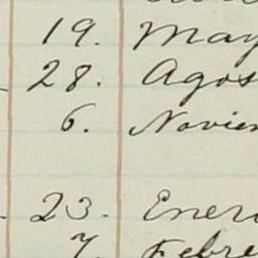 19. May
28. Agos
6. Noviem
23. Enero
7. Febre